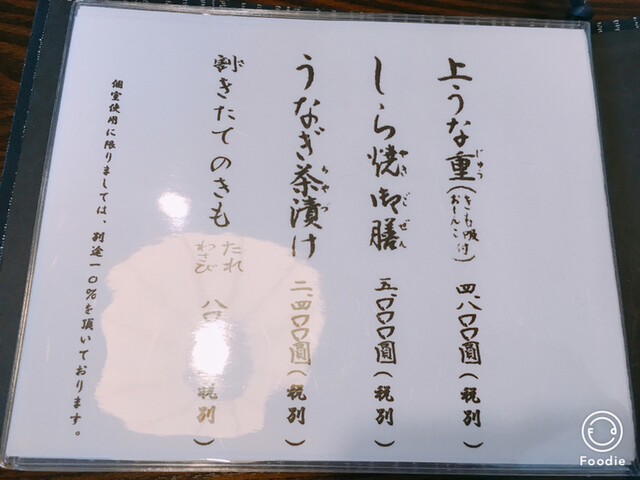 上うな重(きも吸付 おしんこ) 四、八〇〇圓(税別)
じゅう
しら焼御膳 五、〇〇〇圓(税別)
やきごぜん
うなぎ茶漬け 二、四〇〇圓(税別)
ちゃづ
割きたてのきも たれ わさび 八〇 税別)
個室使用に限りましては、別途一〇%を頂いております。
Foodie